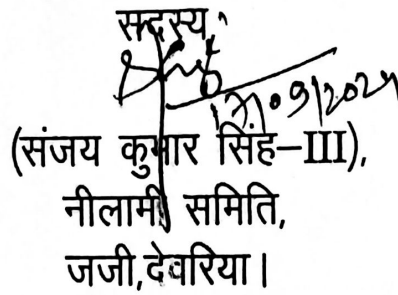 सदस्य,
17.09/2024
(संजय कुमार सिंह–III),
नीलामी समिति,
जजी,देवरिया।